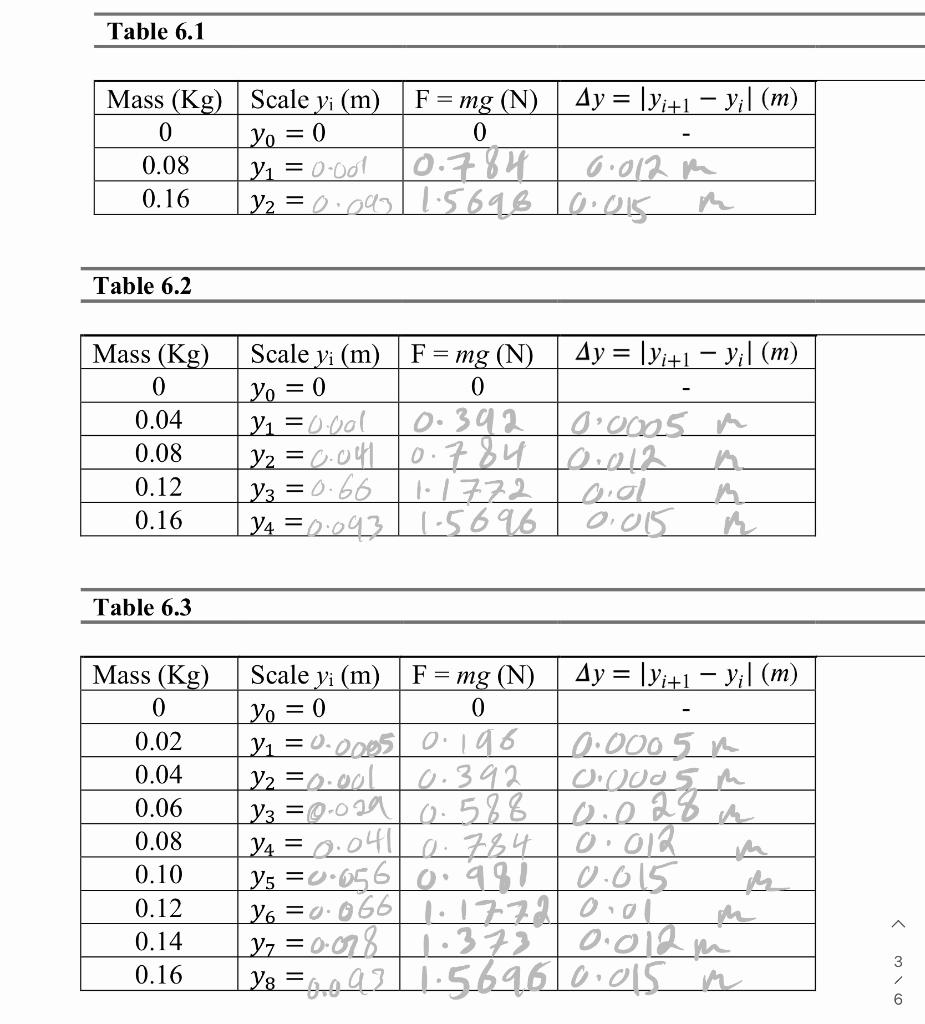 Table 6.1
Mass (Kg) Scale yi (m) F = mg (N) Δy = |yi+1 − yi| (m)
0 y0 = 0 0 -
0.08 y1 = 0.001 0.784 0.012 m
0.16 y2 = 0.093 1.5696 0.015 m
Table 6.2
Mass (Kg) Scale yi (m) F = mg (N) Δy = |yi+1 − yi| (m)
0 y0 = 0 0 -
0.04 y1 = 0.001 0.392 0.0005 m
0.08 y2 = 0.041 0.784 0.012 m
0.12 y3 = 0.66 1.1772 0.01 m
0.16 y4 = 0.093 1.5696 0.015 m
Table 6.3
Mass (Kg) Scale yi (m) F = mg (N) Δy = |yi+1 − yi| (m)
0 y0 = 0 0 -
0.02 y1 = 0.0005 0.196 0.0005 m
0.04 y2 = 0.001 0.392 0.0005 m
0.06 y3 = 0.029 0.588 0.028 m
0.08 y4 = 0.041 0.784 0.012 m
0.10 y5 = 0.056 0.981 0.015 m
0.12 y6 = 0.066 1.1772 0.01 m
0.14 y7 = 0.078 1.373 0.012 m
0.16 y8 = 0.093 1.5696 0.015 m
3
/
6